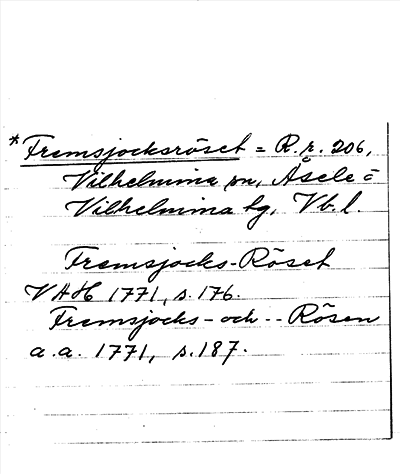 *Fremsjocksröset = R.r. 206,
Vilhelmina sn, Åsele o
Vilhelmina tg, Vb. l.
Fremsjocks-Röset
VAH 1771, s. 176.
Fremsjocks- och -- Rösen
a.a. 1771, s. 187.